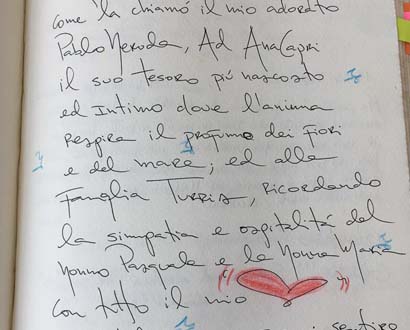 come la chiamó il mio adorato
Pablo Neruda, Ad AnaCapri
il suo tesoro piú nascosto
ed Intimo dove l'anima
Respira il profumo dei fiori
e del mare; ed alla
Famglia Turris, Ricordando
la simpatia e ospitalitá del
Nonno Pasquale e la Nonna Maria
con tutto il mio